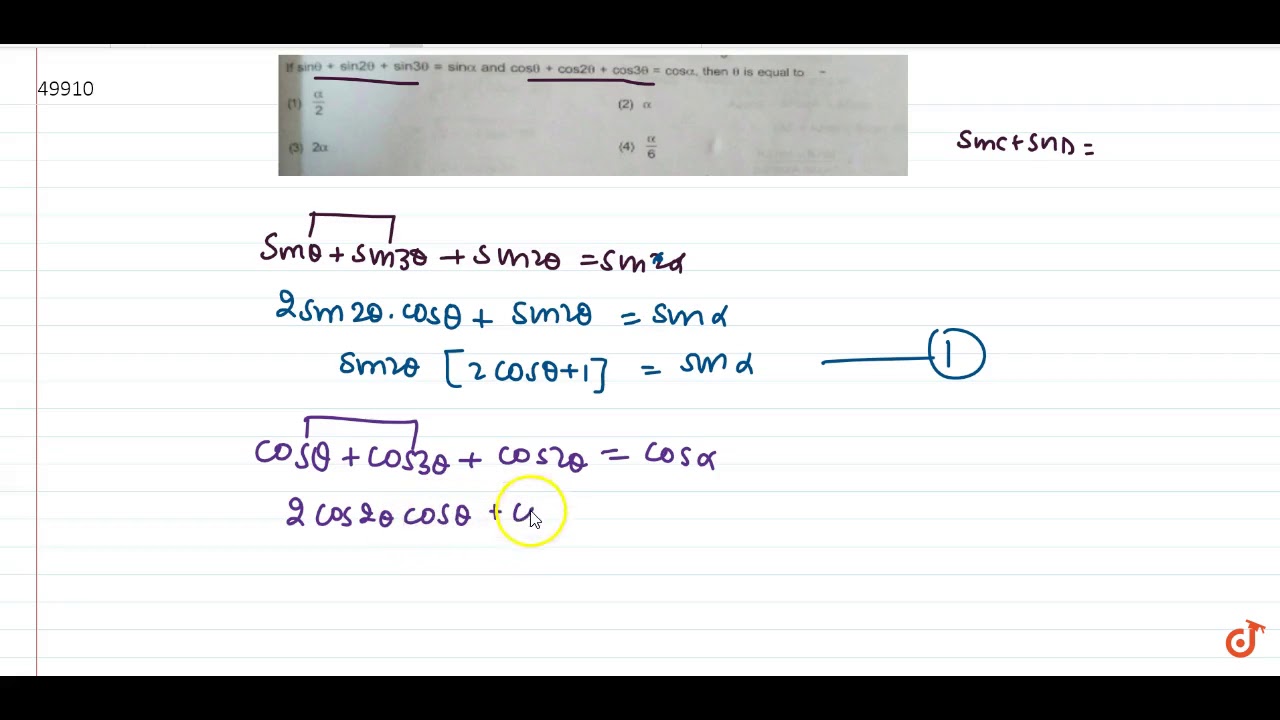 49910
If sinθ + sin2θ + sin3θ = sinα and cosθ + cos2θ + cos3θ = cosα, then θ is equal to -
(1) α/2
(2) α
(3) 2α
(4) α/6
sinC + sinD =
sinθ + sin3θ + sin2θ = sinα
2 sin2θ . cosθ + sin2θ = sinα
sin2θ [2cosθ+1] = sinα
1
cosθ + cos3θ + cos2θ = cosα
2 cos2θ cosθ + c